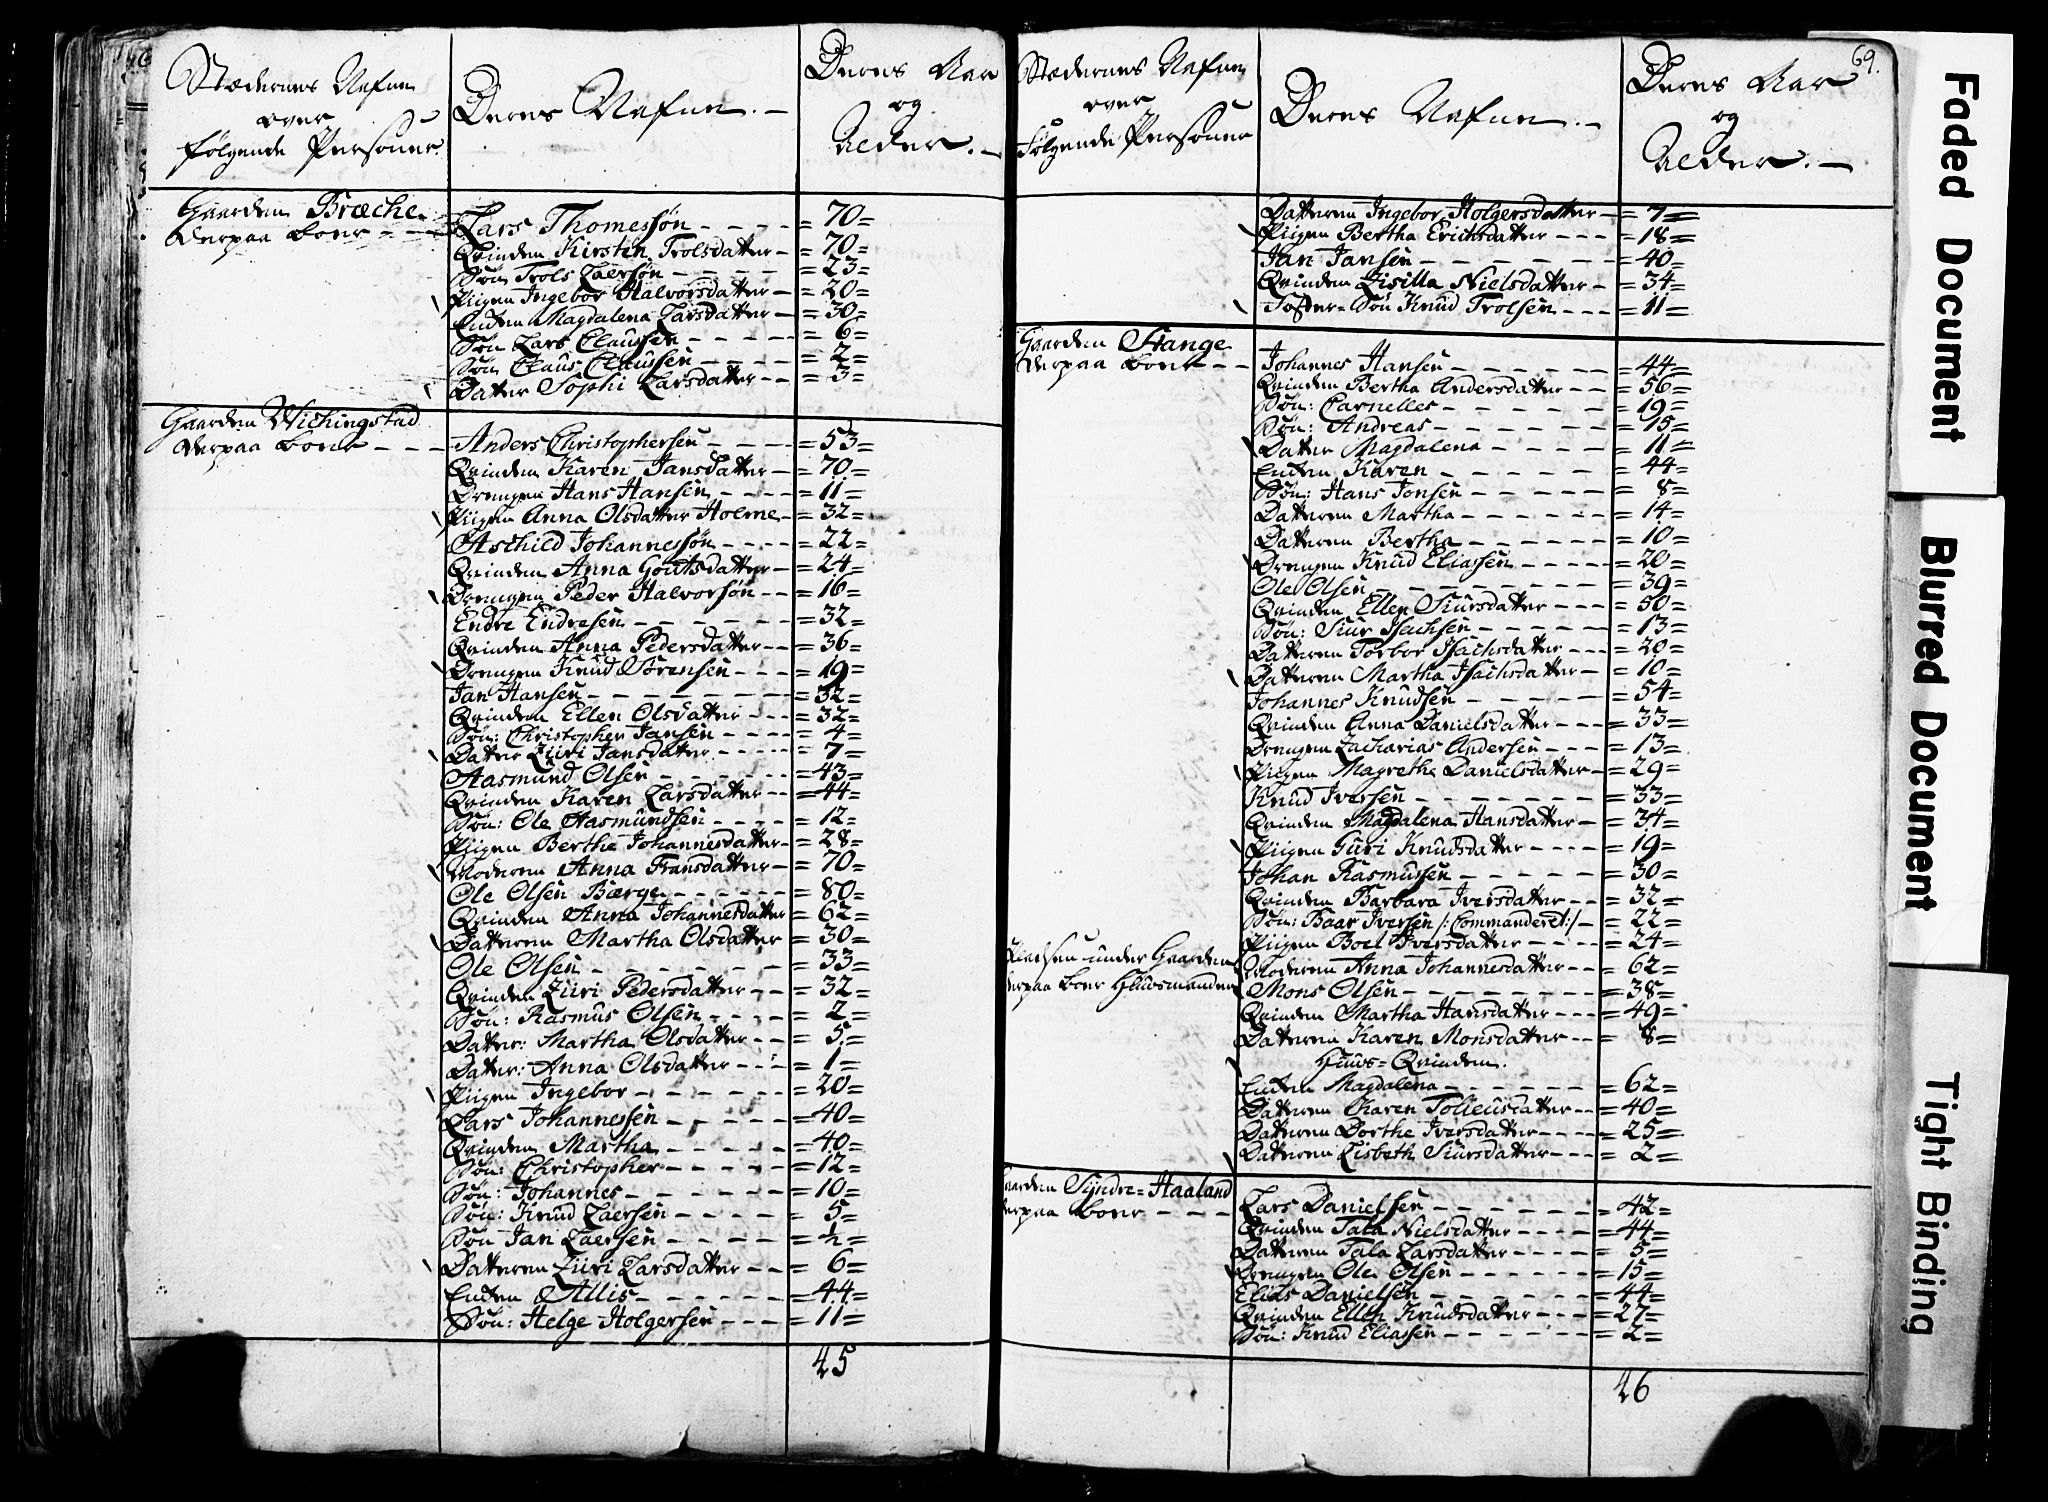 Stædernes Nafne
over
følgende Persohner.
Deres Nafne. —
Deres Aar
og
Alder. —
Gaarden Bræche
derpaa boer — —
Lars Thomessøn — — — — = 70 =
Qvinden Kirsten Trolsdatter — = 70 =
Søn Trols Laersøn — — — — = 23 =
Piigen Ingebor Halvorsdatter — = 20 =
Enken Magdalena Larsdatter — = 30 =
Søn Lars Claussen — — — — = 6 =
Søn Claus Claussen — — — — = 2 =
Datter Sophi Larsdatter — — = 3 =
Gaarden Wichingstad
derpaa boer — — —
Anders Christophersen — — — = 53 =
Qvinden Karen Jansdatter — = 70 =
Drengen Hans Hansen — — — — = 11 =
Piigen Anna Olsdatter Holme — = 32 =
Aschild Johannessøn — — — — = 22 =
Qvinden Anna Goutsdatter — = 24 =
Drengen Peder Halvorsøn — — = 16 =
Endre Endresen — — — — — — = 32 =
Qvinden Anna Pedersdatter — — = 36 =
Drengen Knud Sørensen — — — = 19 =
Jan Hansen — — — — — — — = 32 =
Qvinden Ellen Olsdatter — — — = 32 =
Søn: Christopher Jansen — — — — = 4 =
Datter Ziiri Jansdatter — — — — = 7 =
Aasmund Olsen — — — — — — = 43 =
Qvinden Karen Larsdatter — — = 44 =
Søn: Ole Aasmundsen — — — — = 12 =
Piigen Berthe Johannesdatter — = 28 =
Moderen Anna Fransdatter — = 70 =
Ole Olsen Bærge — — — — — = 80 =
Qvinden Anna Johannesdatter = 62 =
Datteren Martha Olsdatter = 30 =
Ole Olsen — — — — — — — = 33 =
Qvinden Ziiri Pedersdatter — — = 32 =
Søn: Rasmus Olsen — — — — = 2 =
Datter: Martha Olsdatter — — = 5 =
Datter: Anna Olsdatter — — — = 1 =
Piigen Ingebor — — — — — — = 20 =
Lars Johannessen — — — — — = 40 =
Qvinden Martha — — — — — = 40 =
Søn: Christopher — — — — — = 12 =
Søn: Johannes — — — — — — = 10 =
Søn: Knud Laersen — — — — — = 5 =
Søn Jan Laersen — — — — — = ½ =
Datteren Ziiri Larsdatter — — = 6 =
Enken Allis — — — — — — = 44 =
Søn: Helge Holgersen — — — = 11 =
45
69.
Stædernes Nafne
over
Følgende Persohner
Deres Nafne. —
Deres Aar
og
Alder. —
Datteren Ingebor Holgersdatter — = 7 =
Piigen Bertha Erichsdatter — — — = 18 =
Jan Jansen — — — — — — — = 40 =
Qvinden Zisilla Nielsdatter — = 34 =
Foster-Søn Knud Trolsen — — — = 11 =
Gaarden Stange
derpaa boer — —
Johannes Hansen — — — — — — = 44 =
Qvinden Bertha Andersdatter — — = 56 =
Søn: Carnelles — — — — — — = 19 =
Søn: Andreas — — — — — — = 15 =
Datter Magdalena — — — — — = 11 =
Enken Karen — — — — — — = 44 =
Søn: Hans Jonsen — — — — — = 8 =
Datteren Martha — — — — — — = 14 =
Datteren Bertha — — — — — — = 10 =
Drengen Knud Eliassen — — — — — = 20 =
Ole Olsen — — — — — — — — = 39 =
Qvinden Ellen Siursdatter — — — = 50 =
Søn: Siur Isachsen — — — — — = 13 =
Datteren Torbor Isachsdatter — — — = 20 =
Datteren Martha Isachsdatter — = 10 =
Johannes Knudsen — — — — — — = 54 =
Qvinden Anna Danielsdatter — — — = 33 =
Drengen Zacharias Andersen — — — = 13 =
Piigen Magrethe Danielsdatter — = 29 =
Knud Iversen — — — — — — — = 33 =
Qvinden Magdalena Hansdatter — = 34 =
Piigen Guri Knudsdatter — — — — = 19 =
Johan Rasmussen — — — — — — = 30 =
Qvinden Barbara Iversdatter — — = 32 =
Søn: Baar Iversen /: Commanderet :/ — = 22 =
Piigen Boel Iversdatter — — — — = 24 =
Moderen Anna Johannesdatter — — = 62 =
Pladsen under Gaarden
derpaa boer Huusmanden
Mons Olsen — — — — — — — — = 38 =
Qvinden Martha Hansdatter — — — = 49 =
Datteren Karen Monsdatter — — = 8 =
Huus-Qvinden.
Enken Magdalena — — — — — — = 62 =
Datteren Karen Tollevsdatter — — = 40 =
Datteren Dorthe Iversdatter — — — — = 25 =
Datteren Lisbeth Siursdatter — — — = 2 =
Gaarden Syndre-Haaland
derpaa boer — — —
Lars Danielsen — — — — — — = 42 =
Qvinden Tala Nielsdatter — — — — = 44 =
Datteren Tala Larsdatter — — — — = 5 =
Drengen Ole Olsen — — — — — = 15 =
Elias Danielsen — — — — — — = 44 =
Qvinden Ellen Knudsdatter — — — = 27 =
Søn: Knud Eliassen — — — — — — = 2 =
46
Faded Document
Blurred Document
Tight Binding